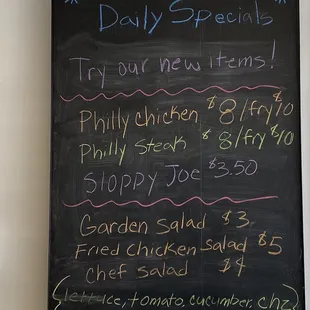 Daily Specials
Try our new items!
Philly chicken $8/fry $10
Philly Steak $8/fry $10
Sloppy Joe $3.50
Garden Salad $3
Fried Chicken Salad $5
Chef Salad $4
(lettuce, tomato, cucumber, chz)